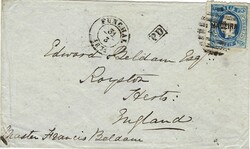 FUNCHAL
PD
Edward Beldam Esqr.
Royston
Herts.
England
Master Francis Beldam